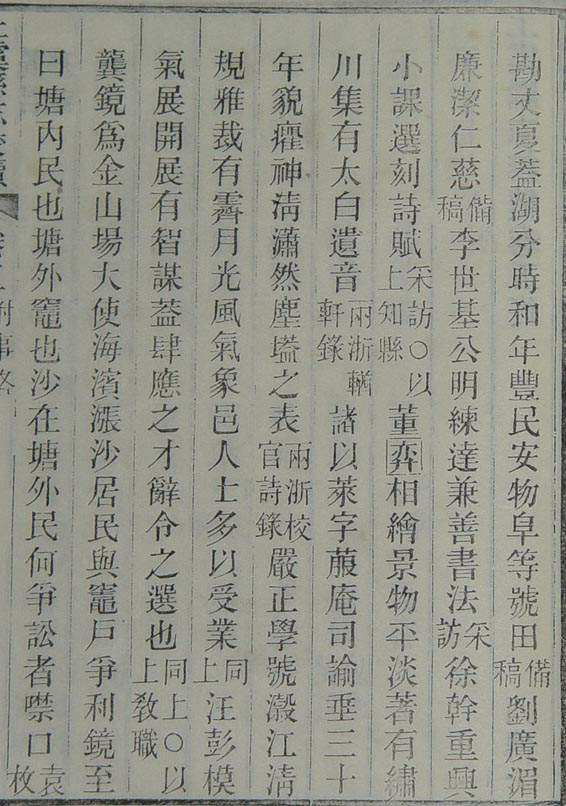 勘丈夏蓋湖分時和年豐民安物阜等號田備稿劉廣湄
廉潔仁慈備稿李世基公明練達兼善書法采訪徐幹重興
小課選刻詩賦采訪○以上知縣董弈相繪景物平淡著有繡
川集有太白遺音兩浙輶軒錄諸以萊字蓛庵司諭垂三十
年貌癯神淸瀟然塵壒之表兩浙校官詩錄嚴正學號瀫江淸
規雅裁有霽月光風氣象邑人士多以受業同上汪彭模
氣展開展有智謀蓋肆應之才辭令之選也同上○以上敎職
龔鏡爲金山場大使海濱漲沙居民與竈戶爭利鏡至
曰塘內民也塘外竈也沙在塘外民何爭訟者噤口袁枚